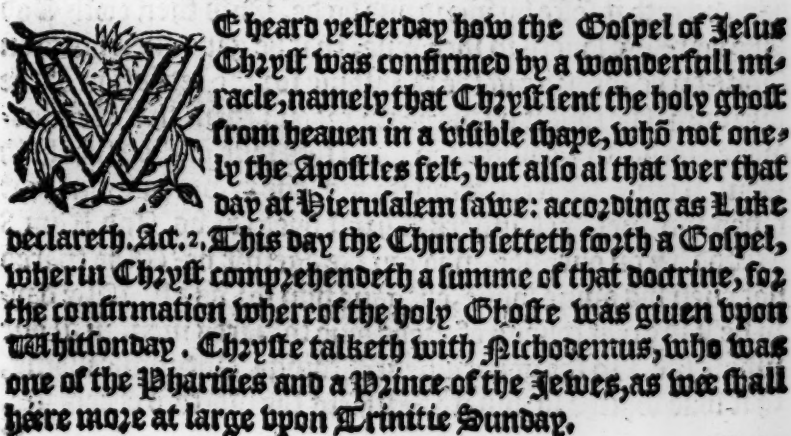 WE heard yeſterday how the Goſpel of Jeſus
Chryſt was confirmed by a woonderfull mi-
racle, namely that Chryſt ſent the holy ghoſt
from heauen in a viſible ſhape, whõ not one-
ly the Apoſtles felt, but alſo al that wer that
day at Hieruſalem ſawe: according as Luke
declareth. Act. 2. This day the Church ſetteth foorth a Goſpel,
wherin Chryſt comprehendeth a ſumme of that doctrine, for
the confirmation whereof the holy Ghoſte was giuen vpon
Whitſonday. Chryſte talketh with Nichodemus, who was
one of the Phariſies and a Prince of the Jewes, as wee ſhall
heere more at large vpon Trinitie Sunday.